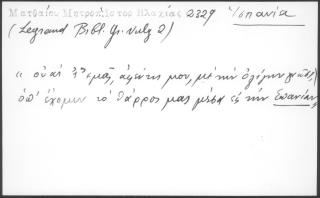 Ματθαίου Μητροπολίτου Βλαχίας 2329 Ἱσπανία
(Legrand Bibl. Gr. Vulg 2)
« οὐαὶ ἐμᾶς, ἀφέντη μου, μὲ τὴν ὀλίγην
ὁπ' ἔχομεν τὸ θάρρος μας μέσα εἰς τὴν Σπανίαν